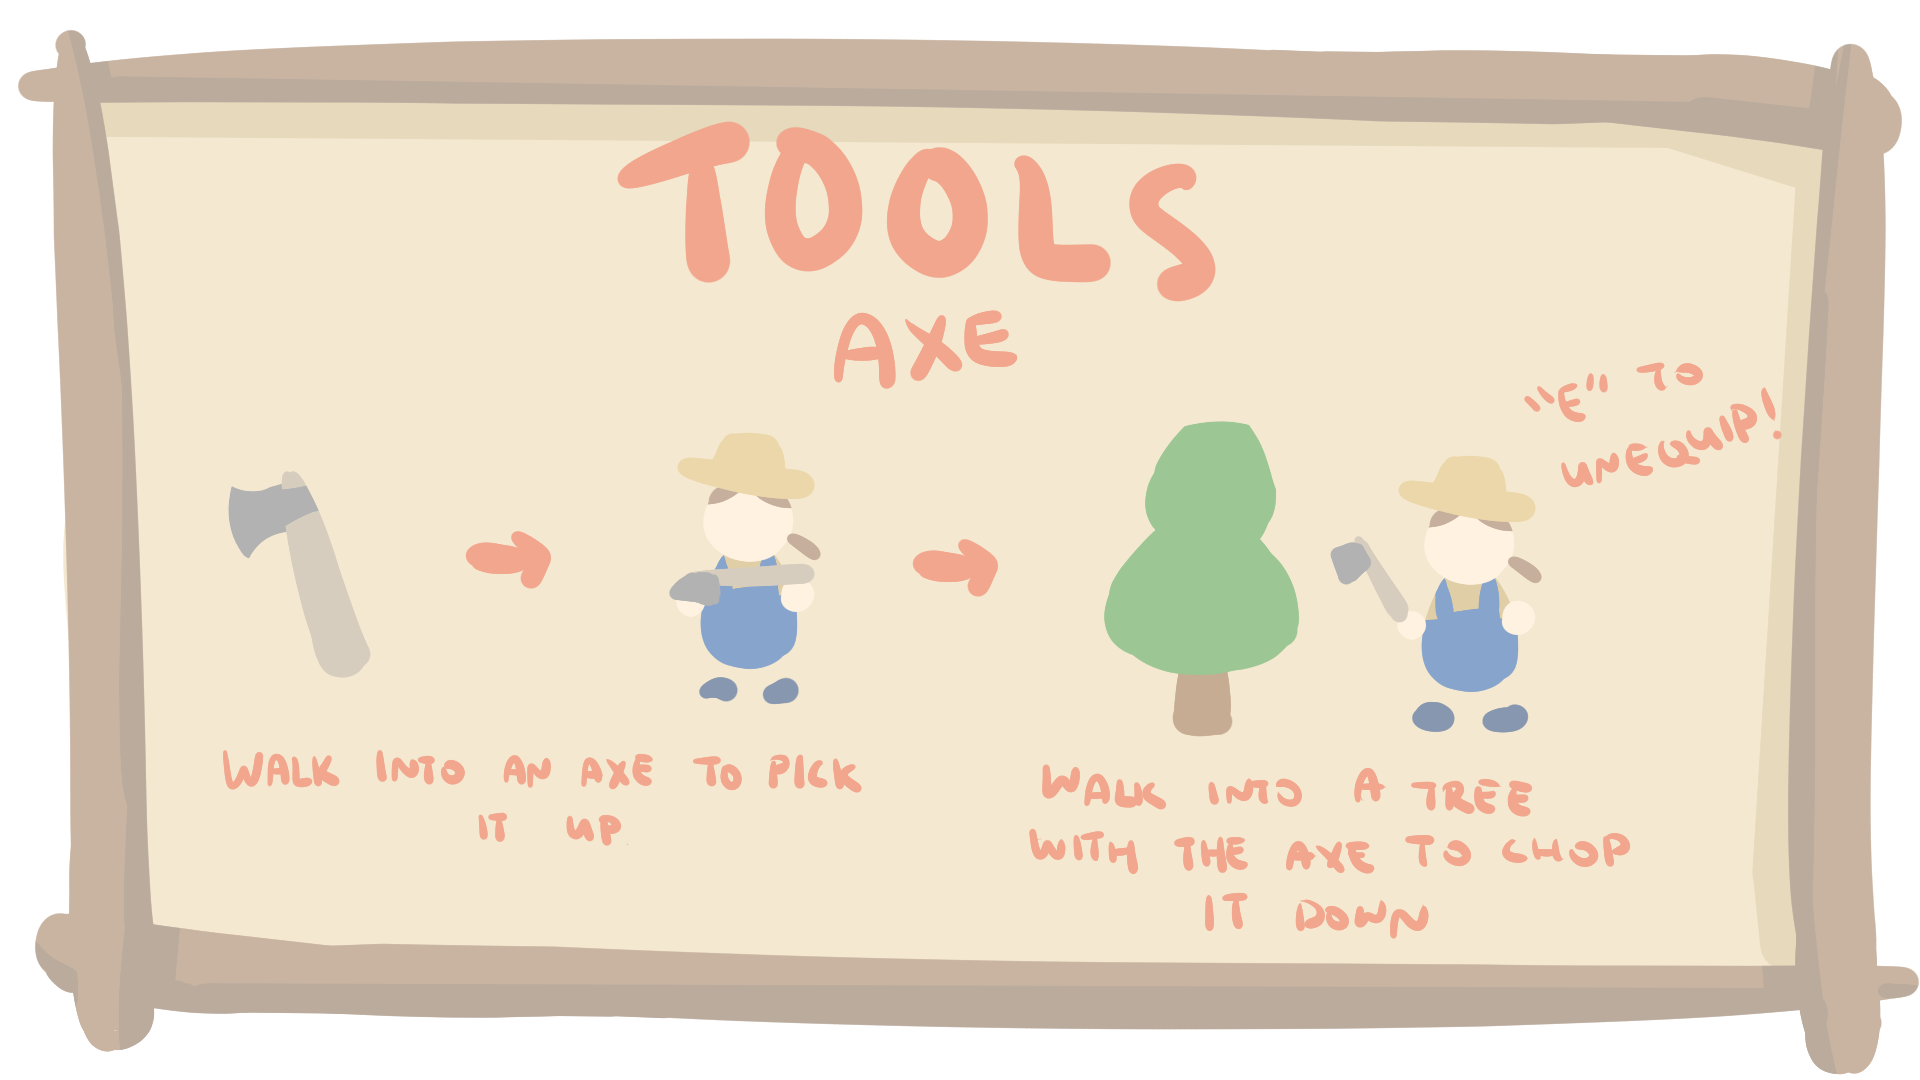 TOOLS
AXE
"E" TO
UNEQUIP!
WALK INTO AN AXE TO PICK
IT UP
WALK INTO A TREE
WITH THE AXE TO CHOP
IT DOWN